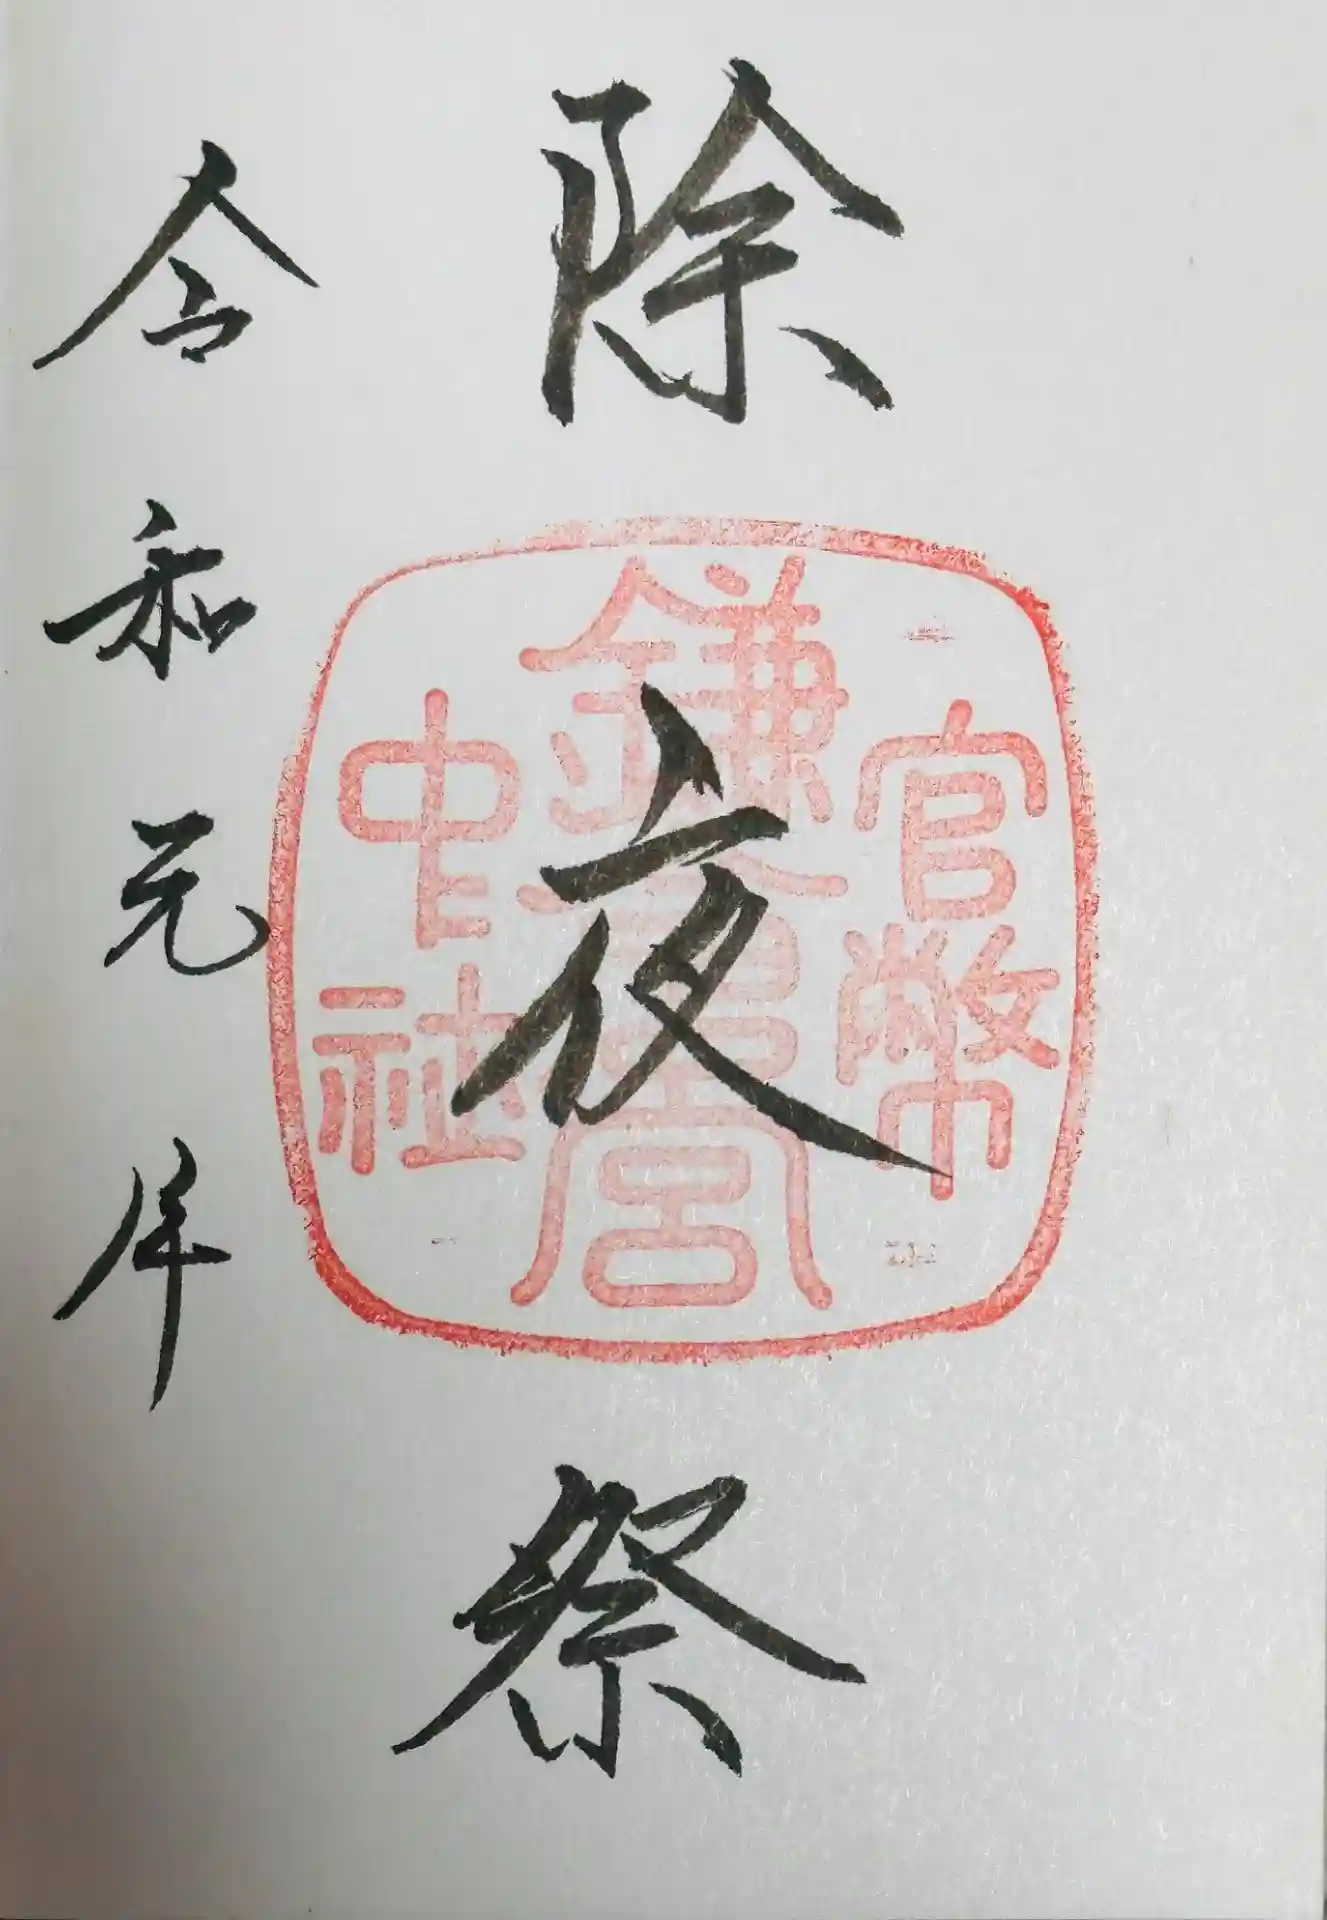 除夜祭
令和元年
官幣
鎌倉宮
中社